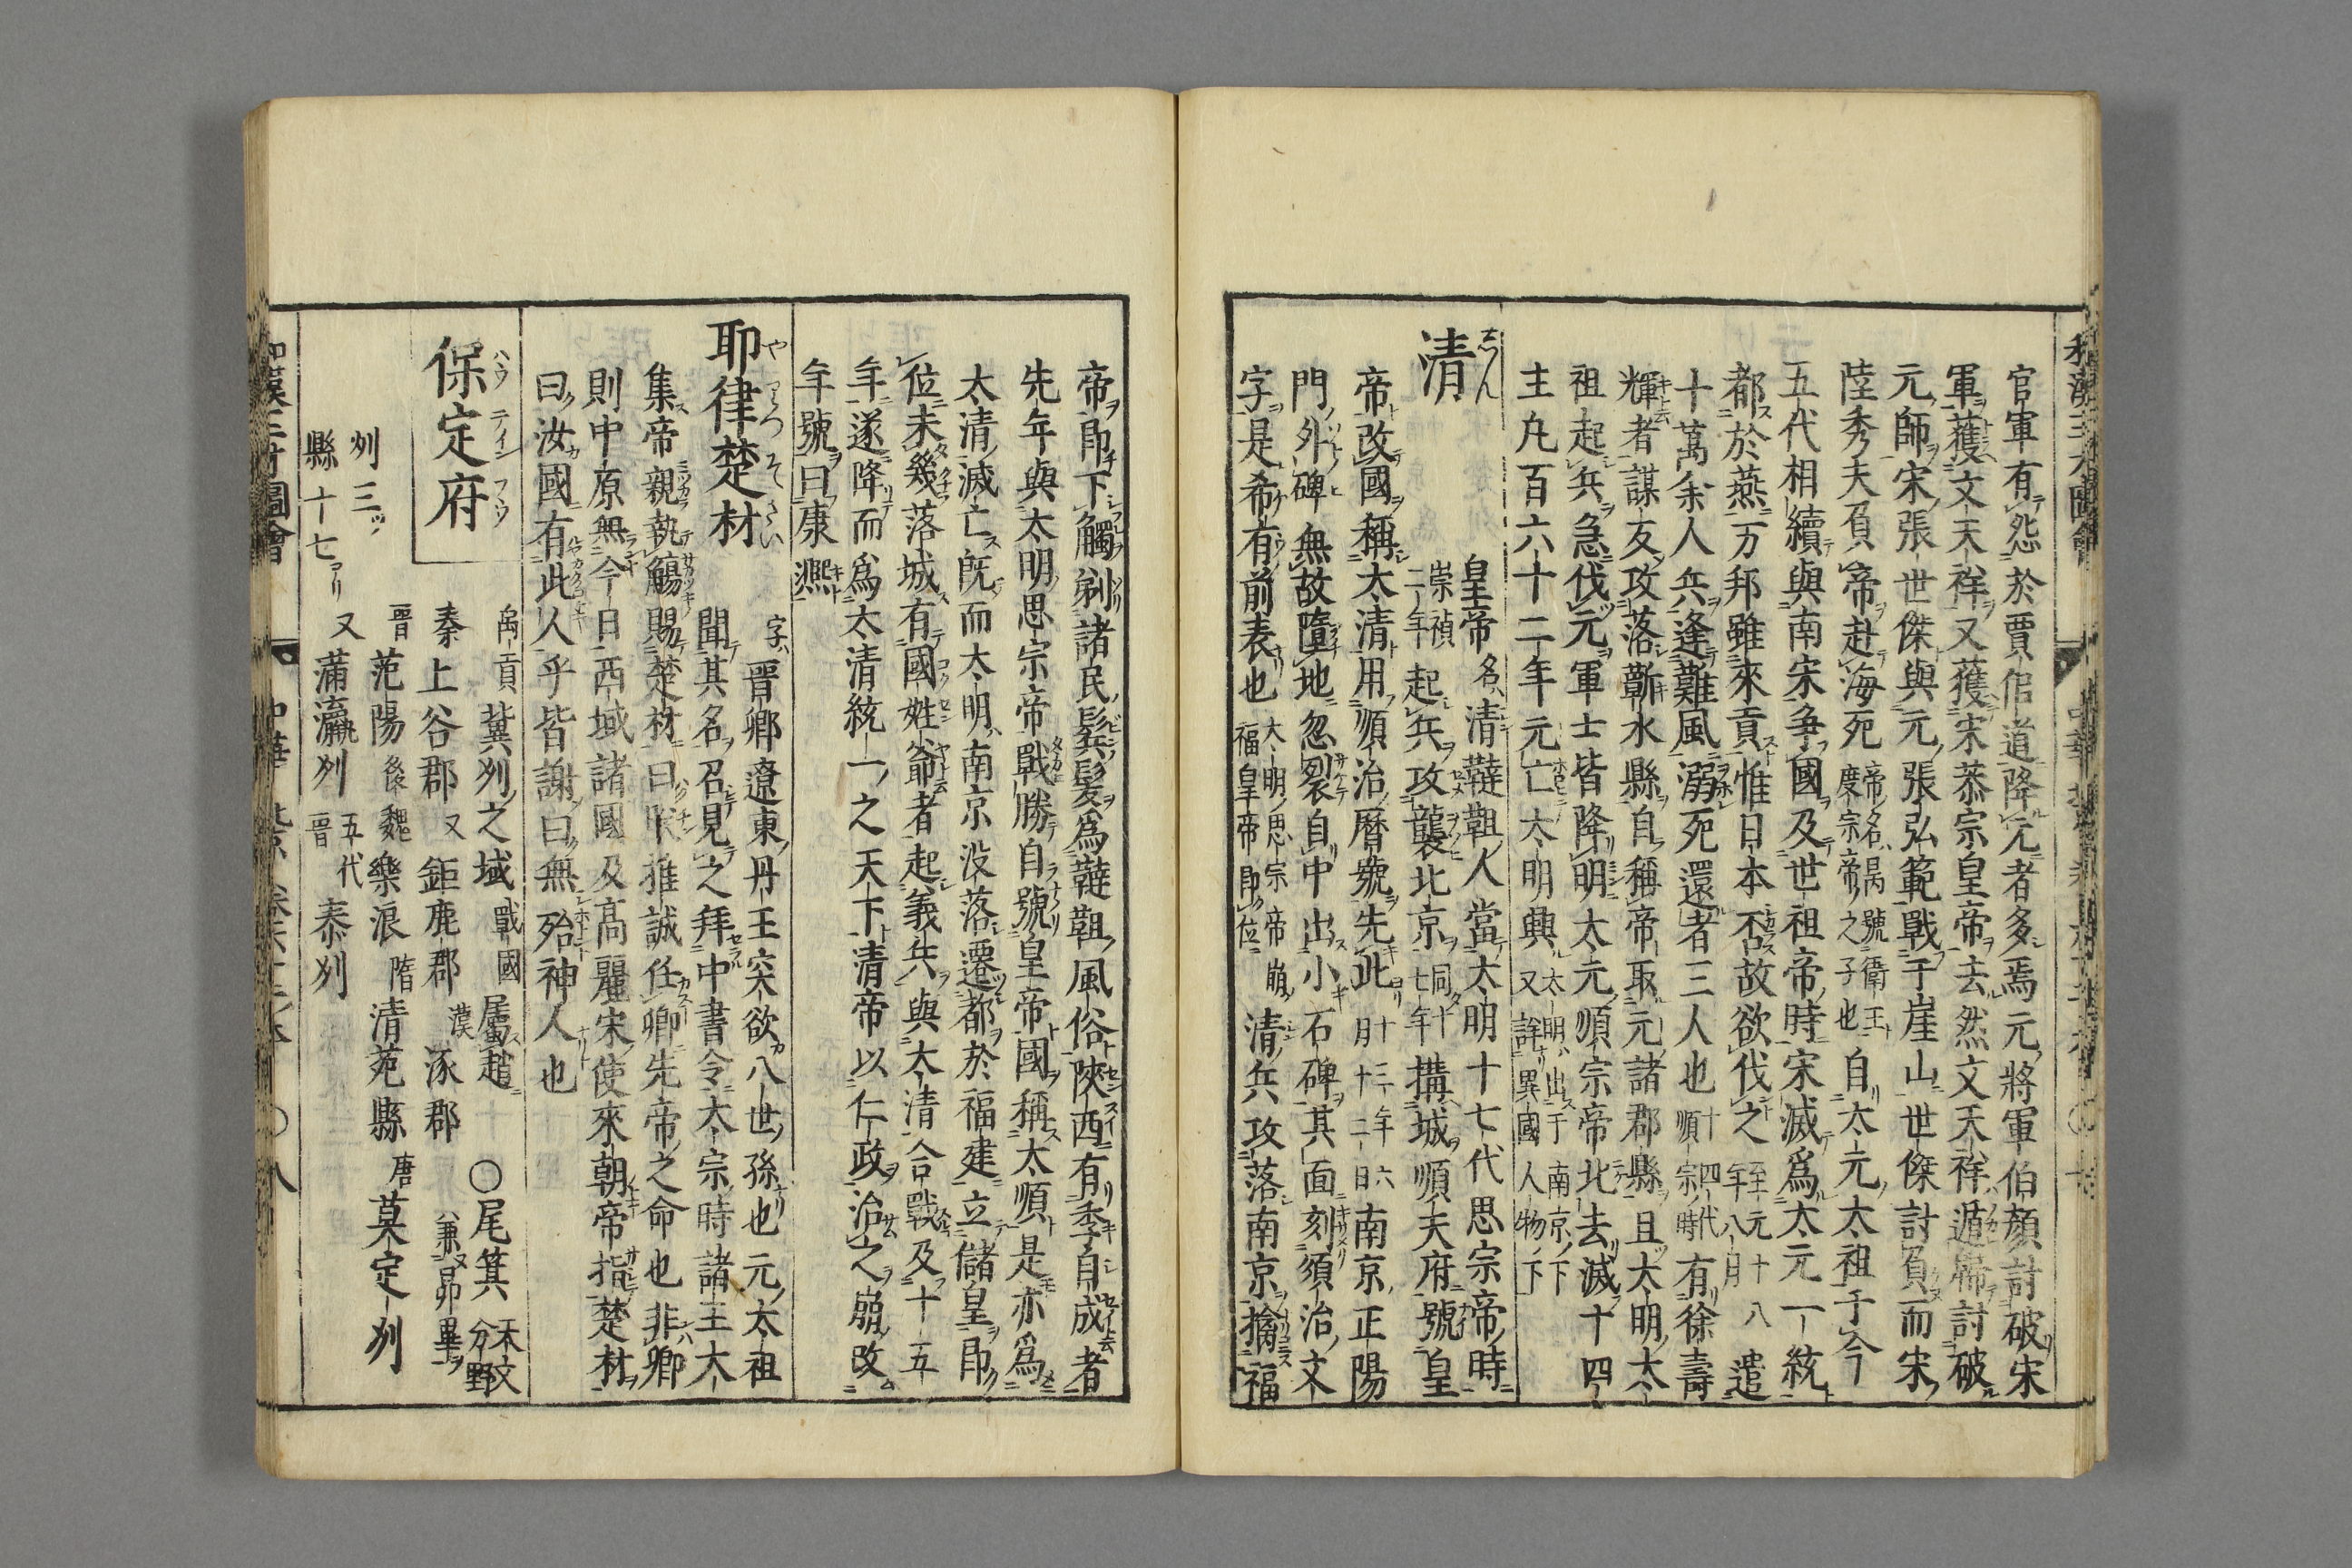 官軍有怨於賈佀道降元者多焉元將軍伯顏討破宋
軍獲文天祥又獲宋恭宗皇帝去然文天祥遁歸討破
元師宋張世傑與元張弘範戰于崖山世傑討負而宋
陸秀夫負帝赴海死帝名昺號衛王度宗帝之子也自太元太祖于今
五代相續與南宋争國及世祖帝時宋滅爲太元一統
都於燕万邦雖來貢惟日本否故欲伐之至元十八年八月遣
十萬余人兵逢難風溺死還者三人也十四代順宗時有徐壽
輝者謀友攻落蘄水縣自稱帝取元諸郡縣且太明太
祖起兵急伐元軍士皆降明太元順宗帝北去滅十四
主凢百六十二年元亡太明興太明出于南京下又詳異國人物下
清
しん
皇帝名清韃靼人當太明十七代思宗帝時
崇禎二年起兵攻襲北京同十七年搆城順天府號皇
帝改國稱太清用順治曆號先此十三年六月十二日南京正陽
門外碑無故墮地忽裂自中出小石碑其面刻須治文
字是希有前表也大明思宗帝崩福皇帝即位清兵攻落南京擒福
帝即下觸剃諸民鬂髪爲韃靼風俗陝西有季自成者
先年與太明思宗帝戰勝自號皇帝國稱太順是亦爲
太清滅亡既而太明南京没落遷都於福建立儲皇即
位未幾落城有國姓爺者起義兵與太清合戰及十五
年遂降而爲太清統一之天下清帝以仁政治之崩改
年號曰康熈
耶律楚材
やりつそさい
字晋卿遼東丹王突欲八世孫也元太祖
聞其名召見之拜中書令太宗時諸王大
集帝親執觴賜楚材曰朕推誠任卿先帝之命也非卿
則中原無今日西域諸國及高麗宋使來朝帝指楚材
曰汝國有此人乎皆謝曰無殆神人也
保定府
ハウテインフウ
禹貢冀州之域戰國屬趙〇尾箕天文分野
秦上谷郡又鉅鹿郡漢涿郡兼昴畢
晋范陽後魏樂浪隋清苑縣唐莫定州
州三ツ又蒲瀛州五代晋泰州
縣十七
和漢三才圖會
中華
〇八